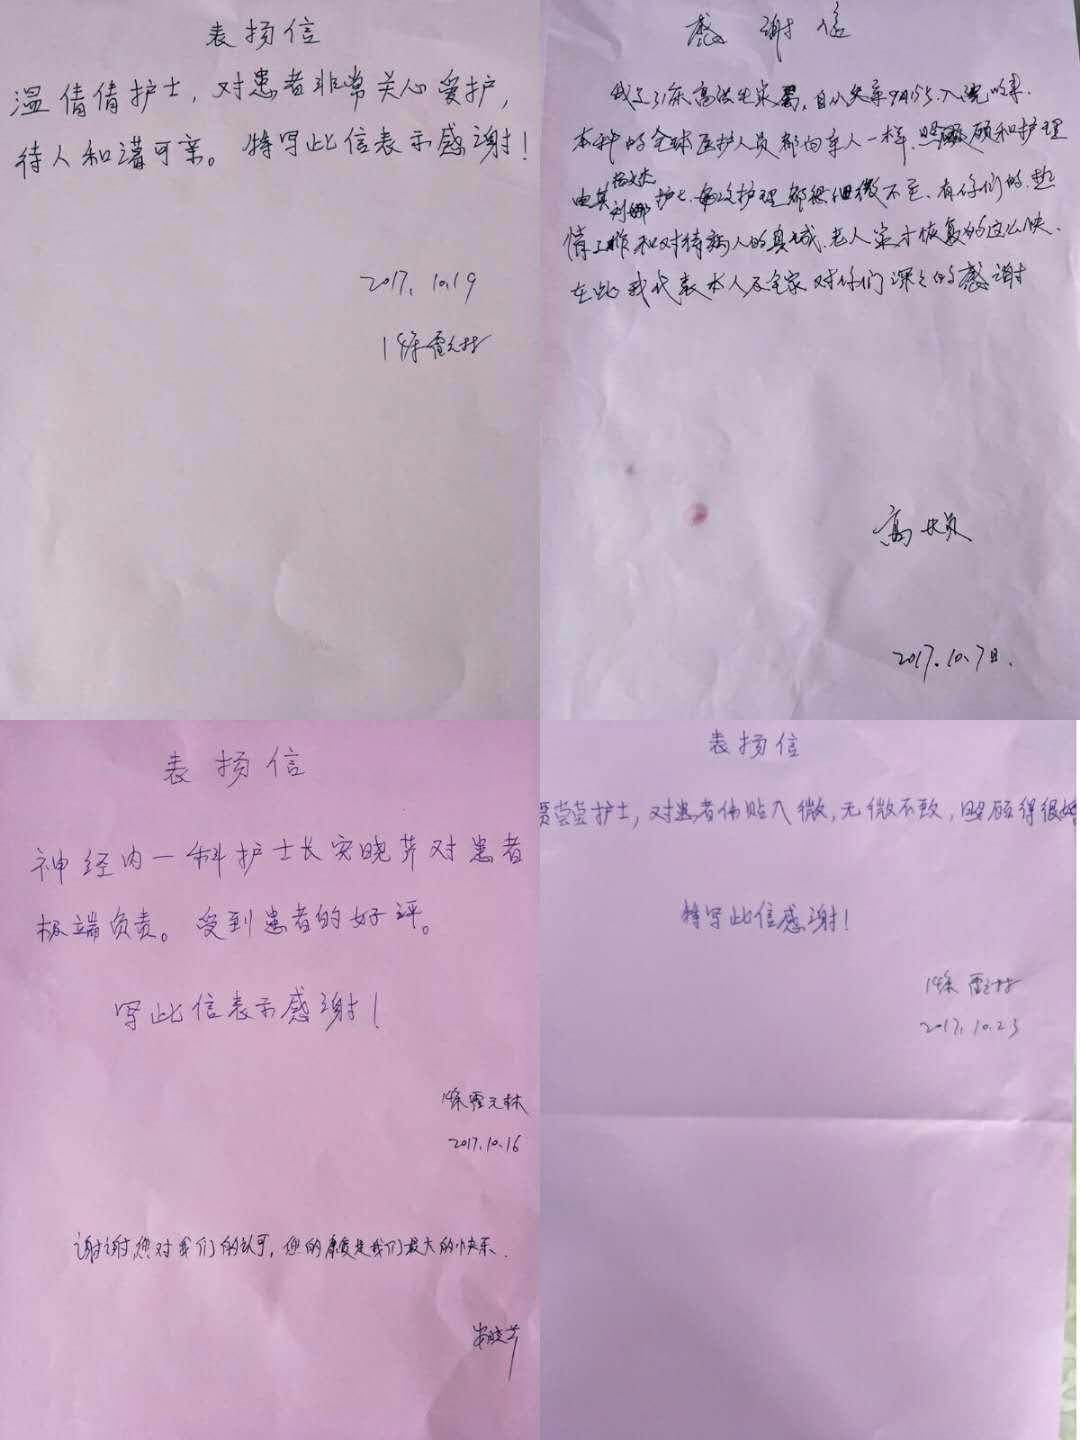 表扬信
温倩倩护士，对患者非常关心爱护，
待人和蔼可亲。特写此信表示感谢！
2017.10.19
徐霍林
感谢信
我是31床高法生家属，自从父亲9月15号入院以来.
本科的全体医护人员都向亲人一样.照顾和护理
尤其杨文杰刘娜护士.每次护理都很细微不至.有你们的热
情工作和对待病人的真诚.老人家才恢复的这么快.
在此我代表本人及全家对你们深深的感谢
高
2017.10.7日.
表扬信
神经内一科护士长安晓芹对患者
极端负责。受到患者的好评。
写此信表示感谢！
2017.10.16
谢谢您对我们的认可，您的康复是我们最大的快乐.
安晓芹
表扬信
贾莹莹护士，对患者体贴入微，无微不致，照顾得很好
特写此信感谢！
2017.10.23